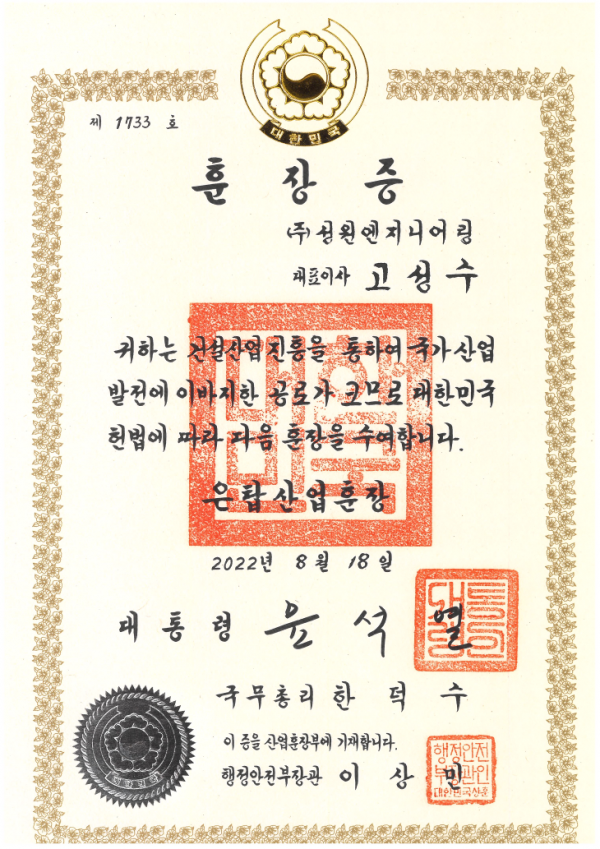 대한민국
제 1733 호
훈장증
(주)성원엔지니어링
대표이사 고성수
귀하는 건설산업진흥을 통하여 국가산업
발전에 이바지한 공로가 크므로 대한민국
헌법에 따라 다음 훈장을 수여합니다.
은탑산업훈장
2022년 8월 18일
대통령 윤석열
국무총리 한덕수
이 증을 산업훈장부에 기재합니다.
행정안전부장관 이상민
행정안전
부장관인